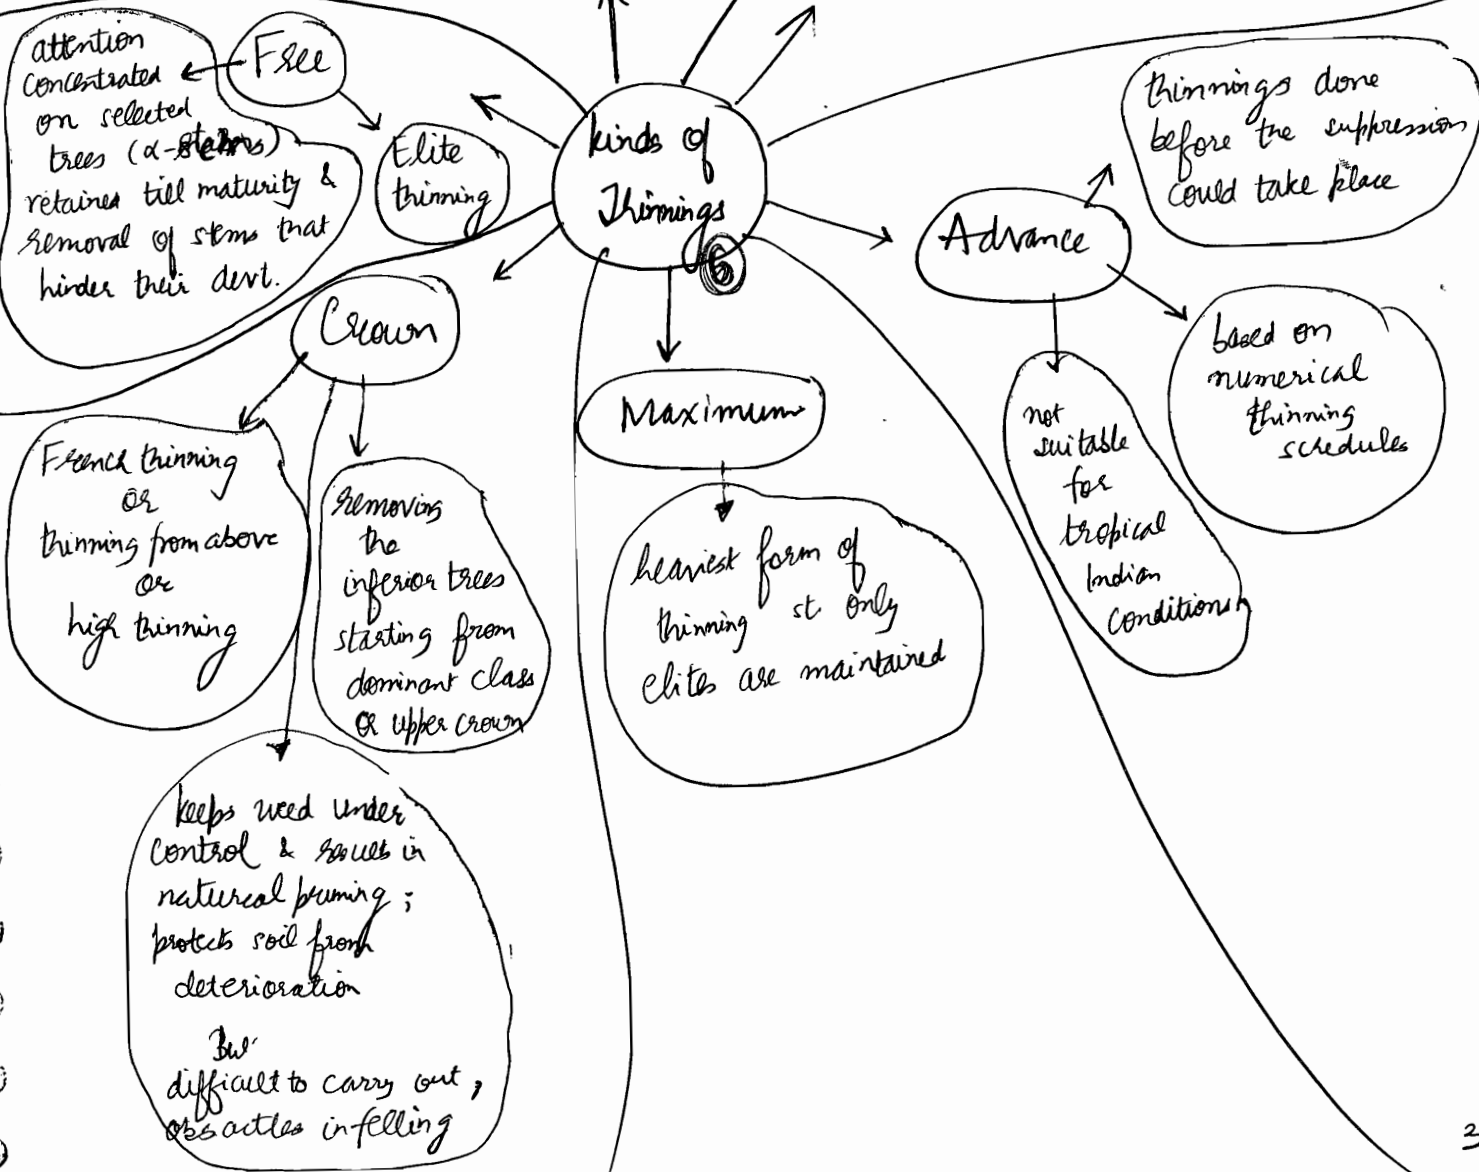 kinds of
Thinnings
Free
attention
concentrated
on selected
trees (α-stems)
retained till maturity &
removal of stems that
hinder their devt.
Elite
thinning
Crown
French thinning
or
thinning from above
or
high thinning
removing
the
inferior trees
starting from
dominant class
or upper crown
keeps weed under
control & results in
natural pruning ;
protects soil from
deterioration
But
difficult to carry out ;
obsactles in felling
Maximum
heaviest form of
thinning st. only
elites are maintained
Advance
thinnings done
before the suppression
could take place
based on
numerical
thinning
schedules
not
suitable
for
tropical
Indian
conditions
2